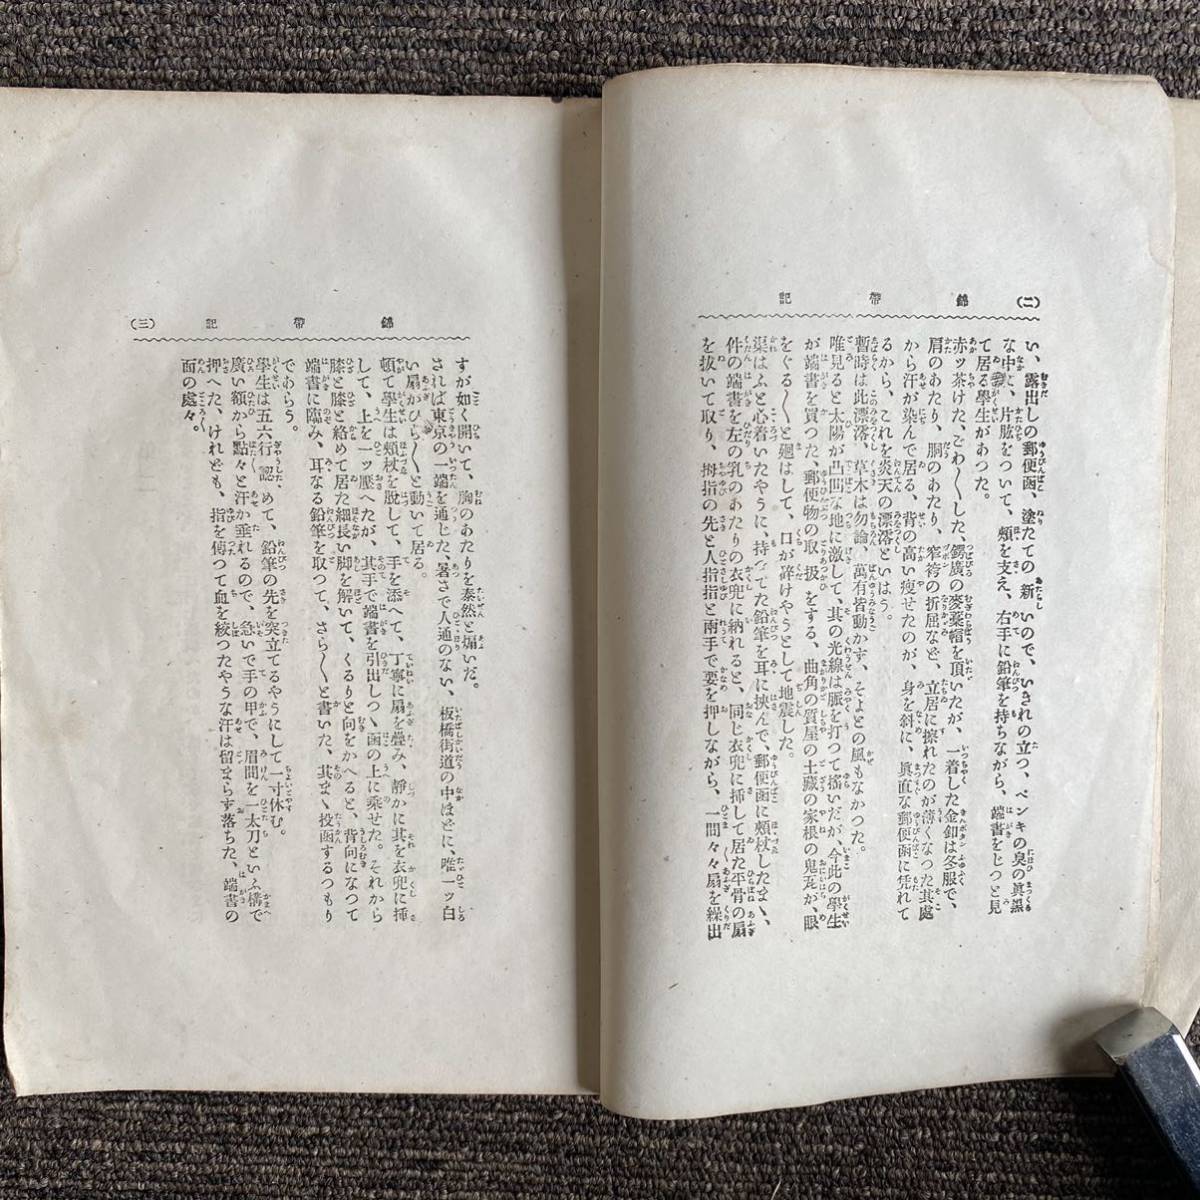 （二）　錦帶記
い、露出しの郵便函、塗たての新いので、いきれの立つ、ペンキの臭の眞黑
な中に、片肱をついて、頰を支え、右手に鉛筆を持ちながら、端書をじつと見
て居る學生があつた。
赤ッ茶けた、ごわ〱した、鍔廣の麥藁帽を頂いたが、一着した金釦は冬服で、
肩のあたり、胴のあたり、窄袴の折屈など、立居に擦れたのが薄くなつた其處
から汗が染んで居る、背の高い瘦せたのが、身を斜に、眞直な郵便函に凭れて
るから、これを炎天の漂澪といはう。
暫時は此漂澪、草木は勿論、萬有皆動かず、そよとの風もなかつた。
唯見ると太陽が凸凹な地に激して、其の光線は脈を打つて搖いだが、今此の學生
が端書を買つた、郵便物の取扱をする、曲角の質屋の土藏の家根の鬼瓦が、眼
をぐる〱と廻はして、口が碎けやうとして地震した。
渠はふと心着いたやうに、持つてた鉛筆を耳に挾んで、郵便函に頰杖したまゝ、
件の端書を左の乳のあたりの衣兜に納れると、同じ衣兜に挿して居た平骨の扇
を拔いて取り、拇指の先と人指指と兩手で要を押しながら、一間々々扇を繰出
錦帶記　（三）
すが如く開いて、胸のあたりを泰然と煽いだ。
されば東京の一端を通じた、暑さで人通のない、板橋街道の中ほどに、唯一ッ白
い扇がひら〱と動いて居る。
頓て學生は頰杖を脫して、手を添へて、丁寧に扇を疊み、靜かに其を衣兜に挿
して、上を一ッ壓へたが、其手で端書を引出しつゝ函の上に乘せた。それから
膝と膝と絡めて居た細長い脚を解いて、くるりと向をかへると、背向になつて
端書に臨み、耳なる鉛筆を取つて、さら〱と書いた、其まゝ投函するつもり
であらう。
學生は五六行認めて、鉛筆の先を突立てるやうにして一寸休む。
廣い額から點々と汗が垂れるので、急いで手の甲で、眉間を一太刀といふ構で
押へた、けれども、指を傳つて血を絞つたやうな汗は留まらず落ちた、端書の
面の處々。